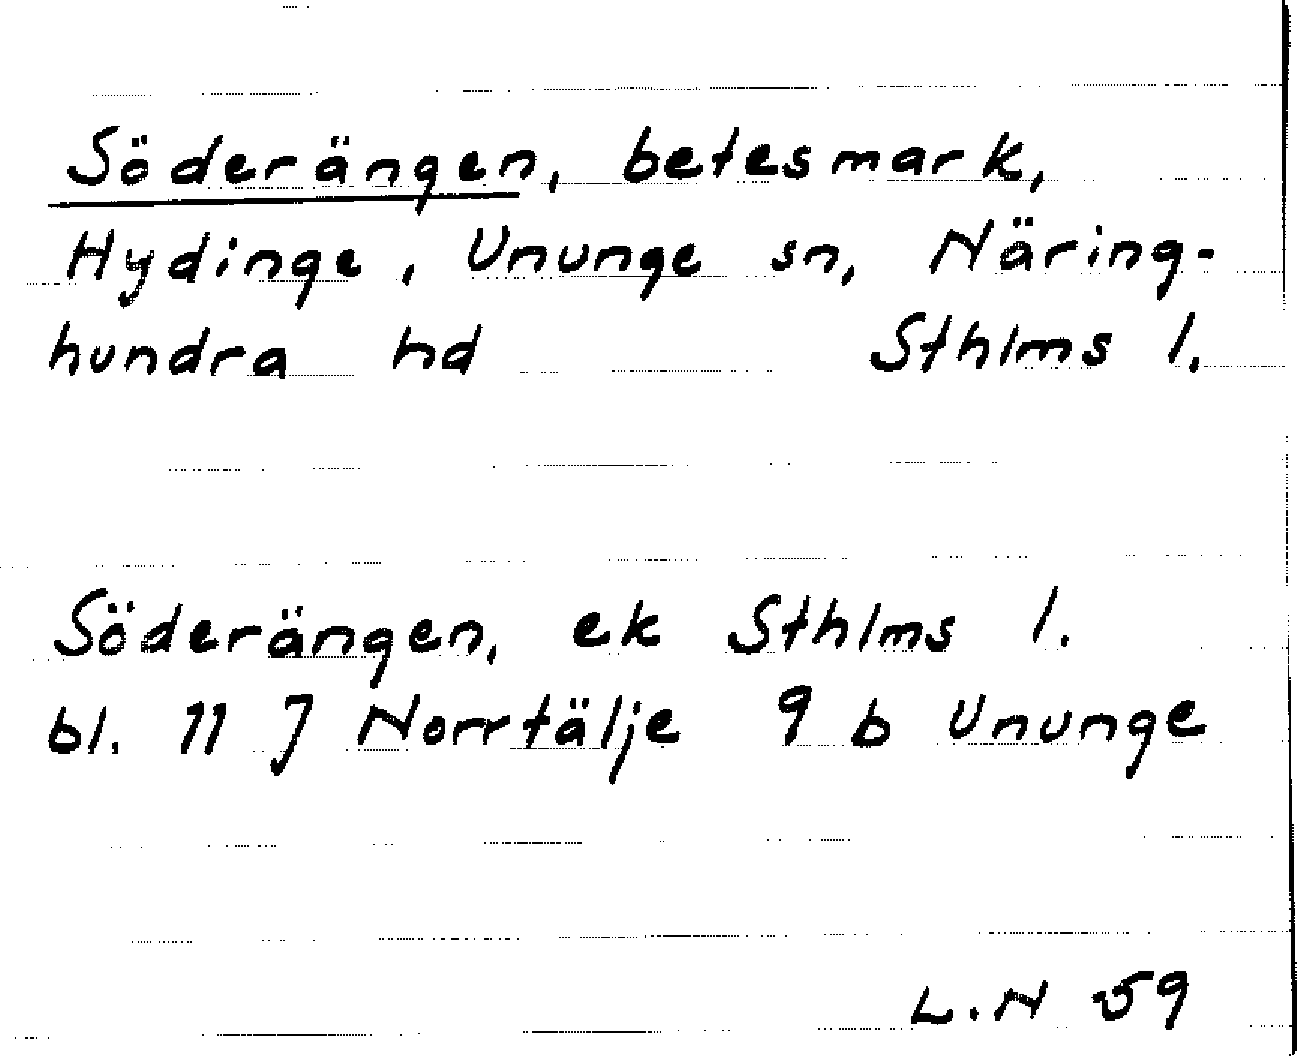 Söderängen, betesmark,
Hydinge, Ununge sn, Näring-
hundra hd Sthlms l.
Söderängen, ek Sthlms l.
bl. 11 J Norrtälje 9 b Ununge
L.N 59